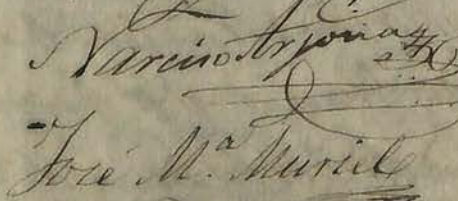 Narciso Arjona
José M.ª Muriel